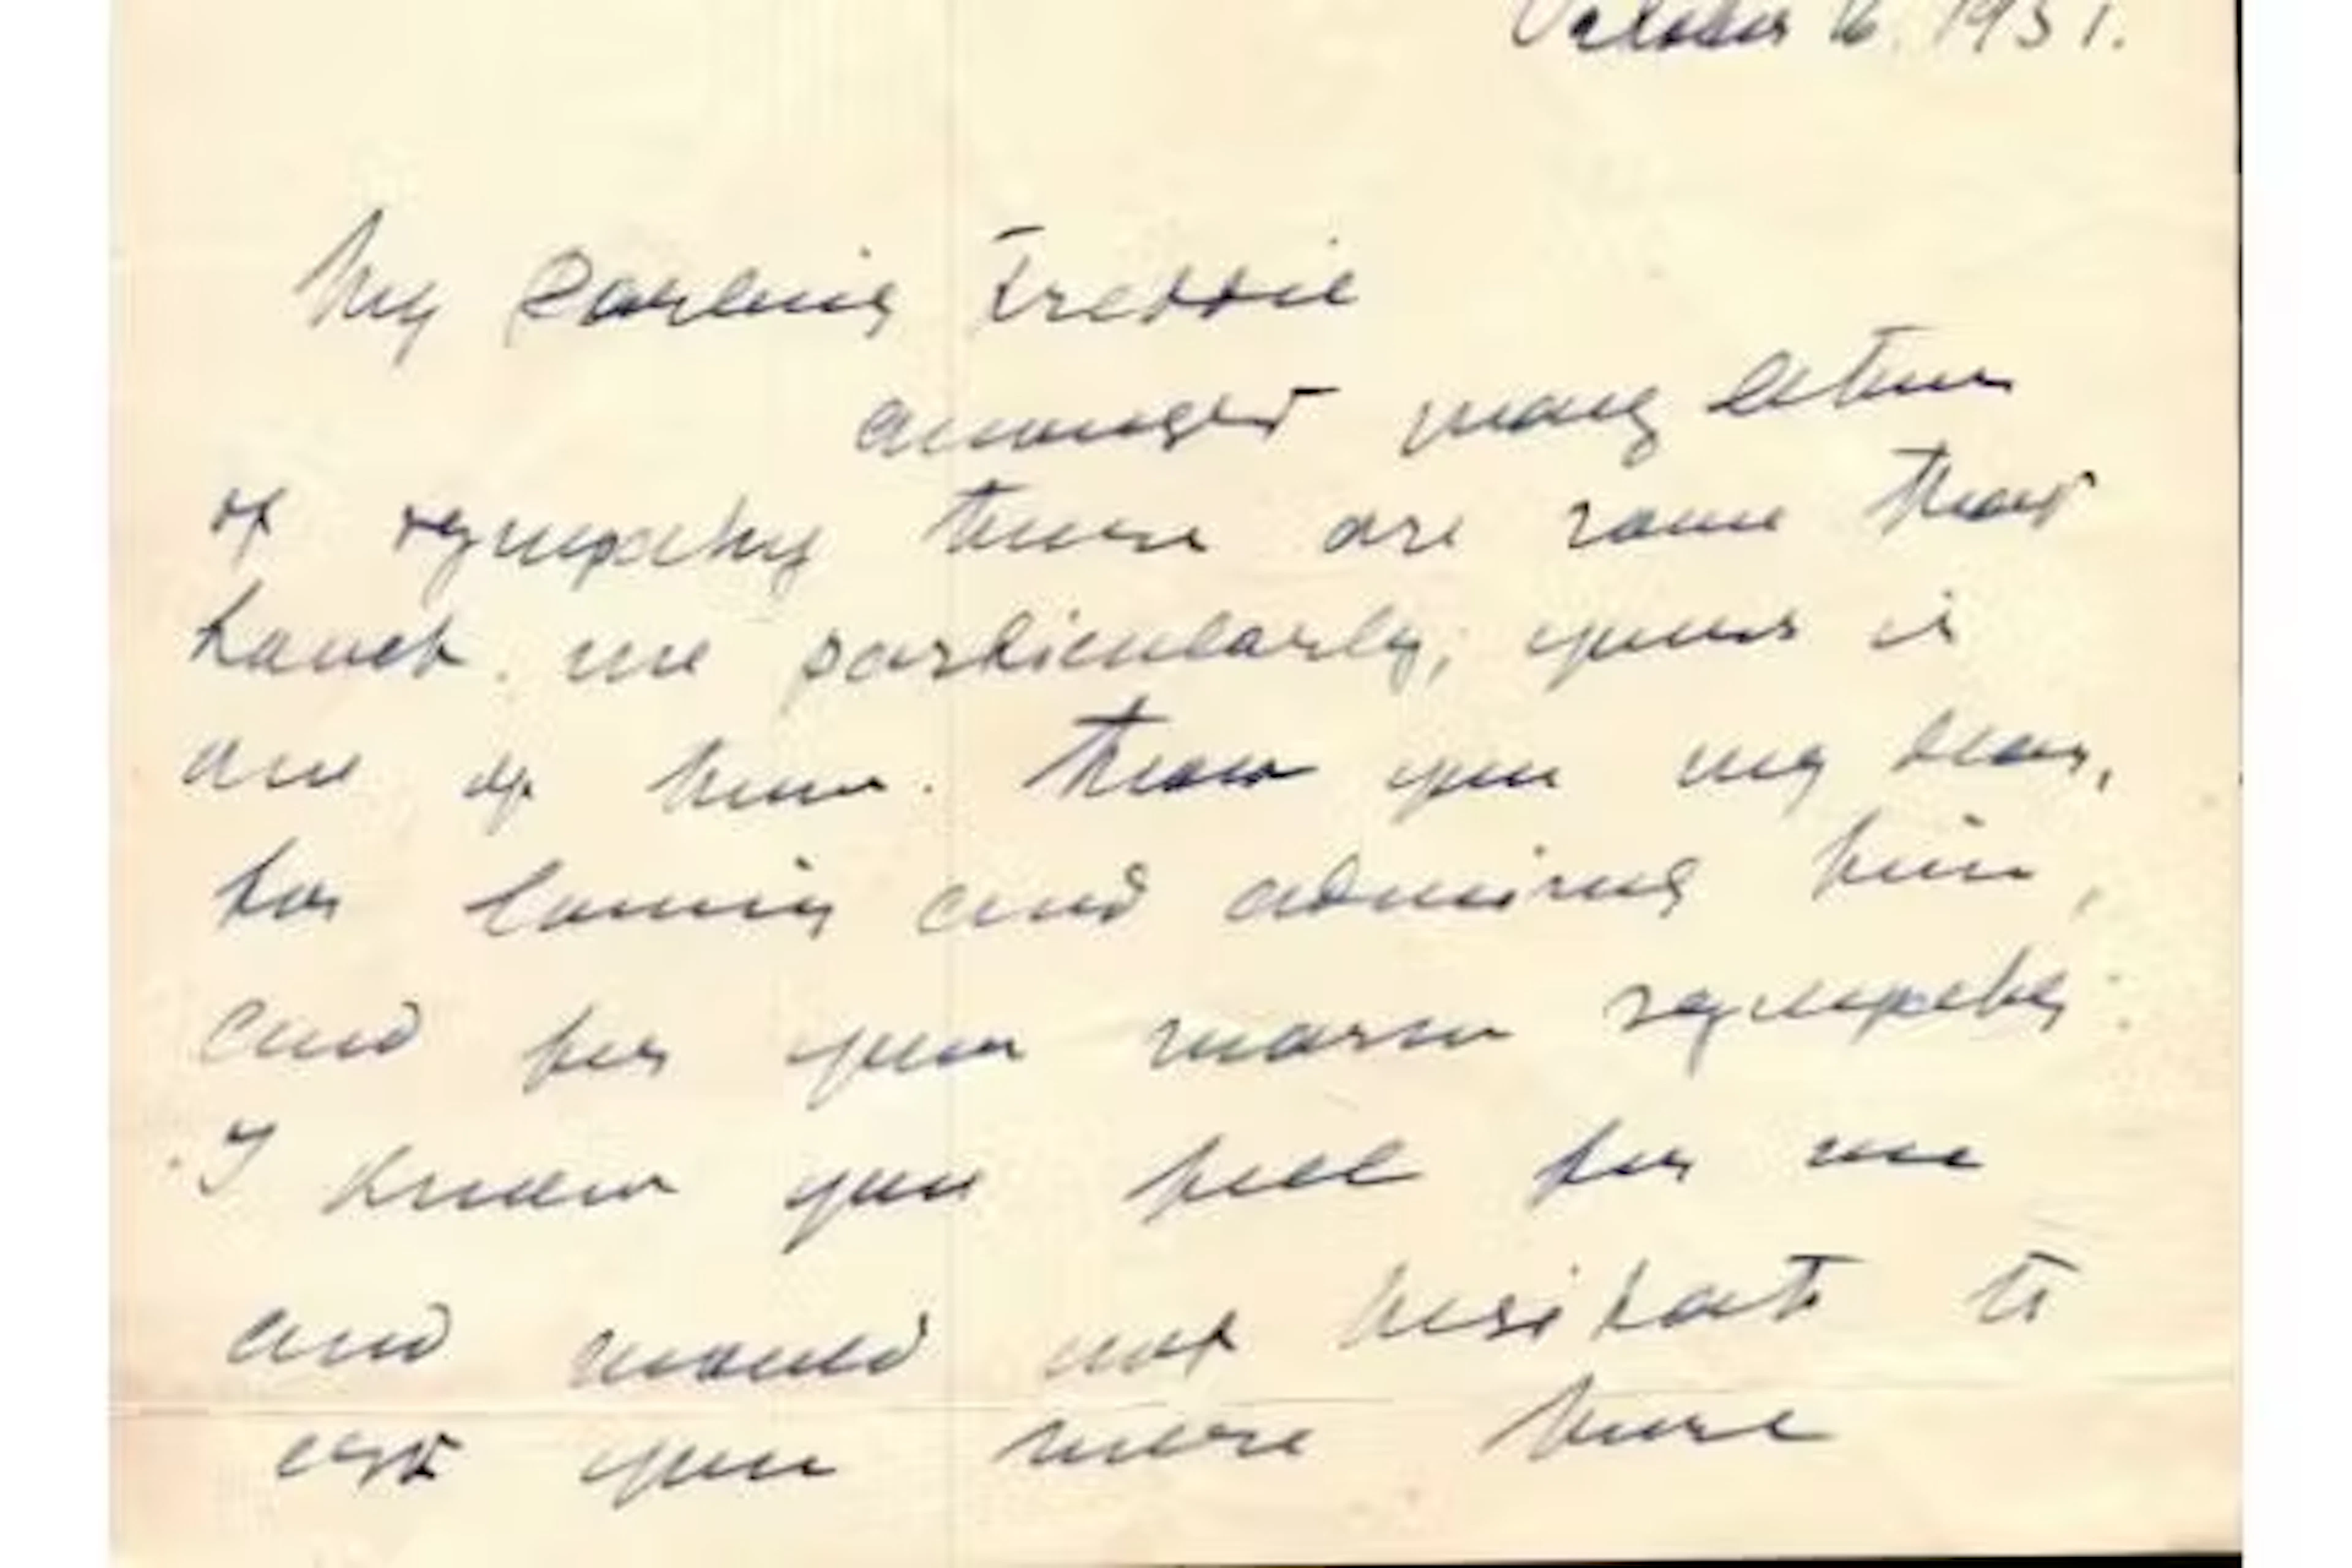 October 16. 1931.
My Darling Freddie
amongst many letters
of sympathy there are some that
touch me particularly; yours is
one of them. Thank you my dear,
for loving and admiring him,
and for your warm sympathy.
I know you feel for me
and would not hesitate to
ask you were here